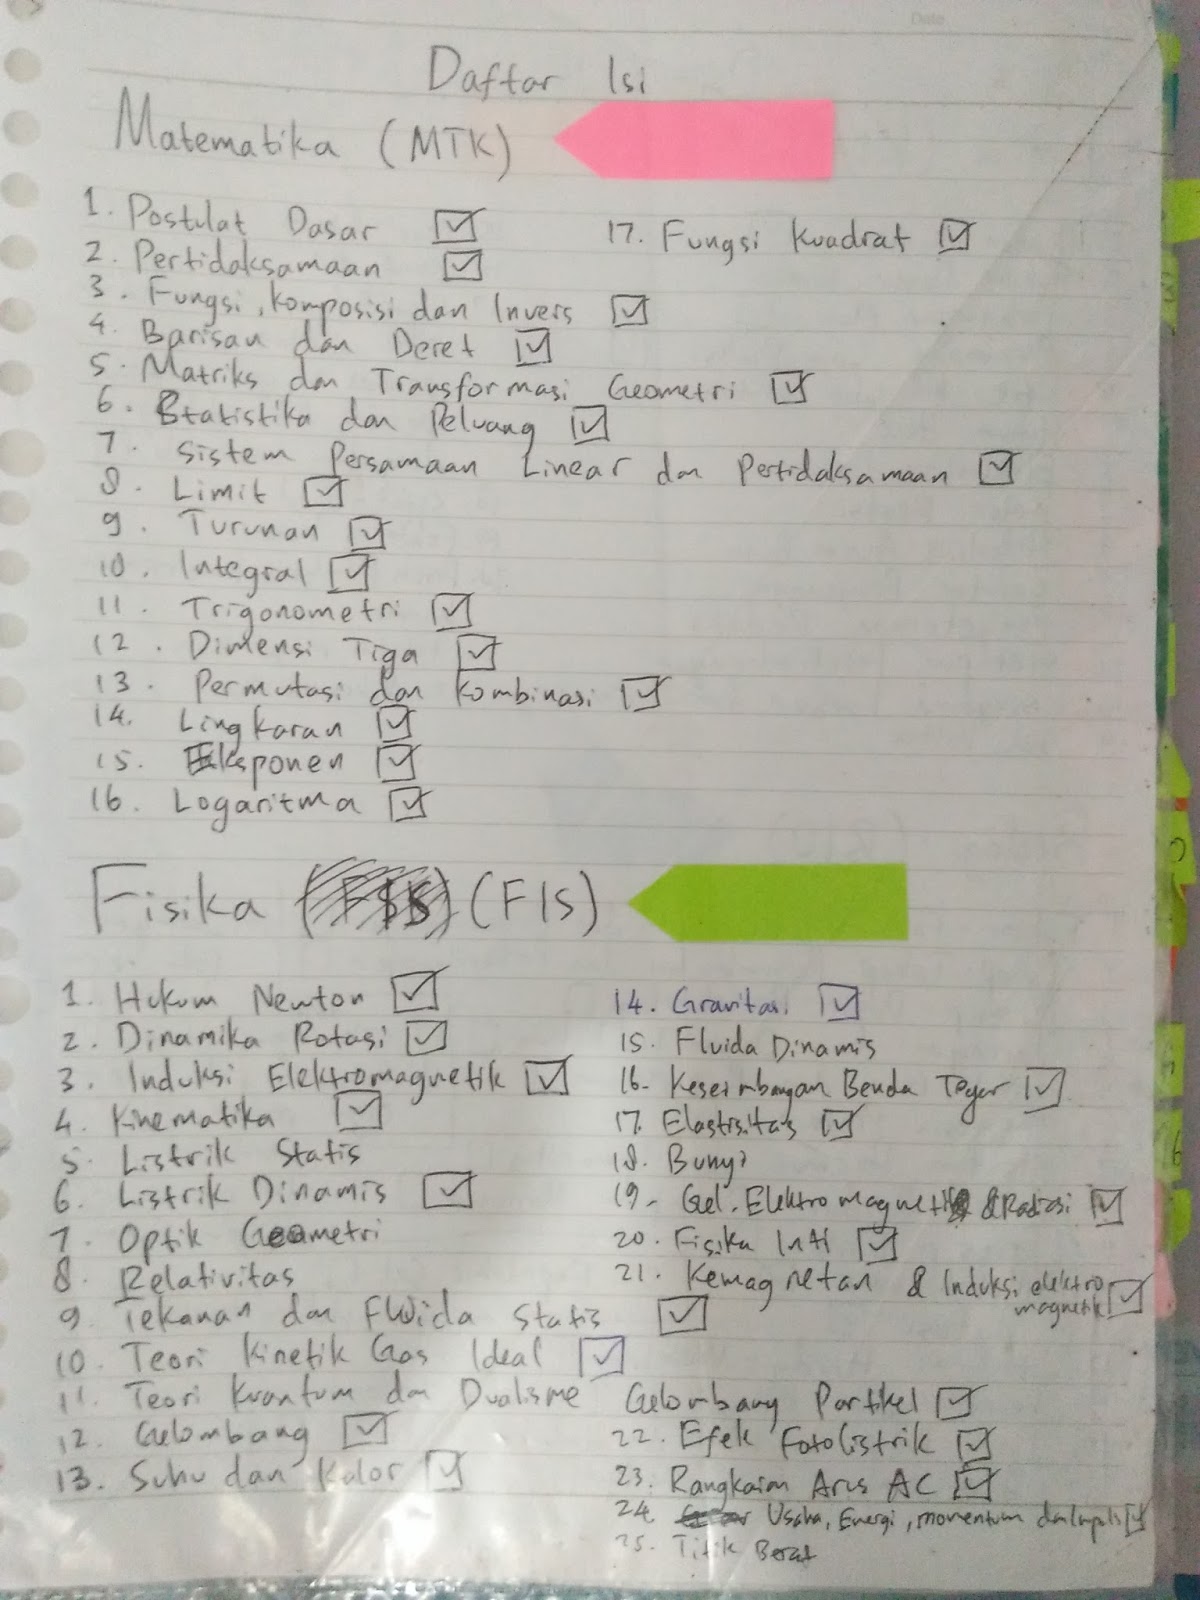 Date
Daftar Isi
Matematika (MTK)
1. Postulat Dasar
2. Pertidaksamaan
3. Fungsi, komposisi dan Invers
4. Barisan dan Deret
5. Matriks dan Transformasi Geometri
6. Statistika dan Peluang
7. Sistem Persamaan Linear dan Pertidaksamaan
8. Limit
9. Turunan
10. Integral
11. Trigonometri
12. Dimensi Tiga
13. Permutasi dan Kombinasi
14. Lingkaran
15. Eksponen
16. Logaritma
17. Fungsi Kuadrat
Fisika (FIS)
1. Hukum Newton
2. Dinamika Rotasi
3. Induksi Elektromagnetik
4. Kinematika
5. Listrik Statis
6. Listrik Dinamis
7. Optik Geometri
8. Relativitas
9. Tekanan dan Fluida Statis
10. Teori Kinetik Gas Ideal
11. Teori Kuantum dan Dualisme Gelombang Partikel
12. Gelombang
13. Suhu dan Kalor
14. Gravitasi
15. Fluida Dinamis
16. Kesetimbangan Benda Tegar
17. Elastisitas
18. Bunyi
19. Gel. Elektromagnetik & Radiasi
20. Fisika Inti
21. Kemagnetan & Induksi elektro
magnetik
22. Efek Fotolistrik
23. Rangkaian Arus AC
24. Usaha, Energi, momentum dan Impuls
25. Titik Berat